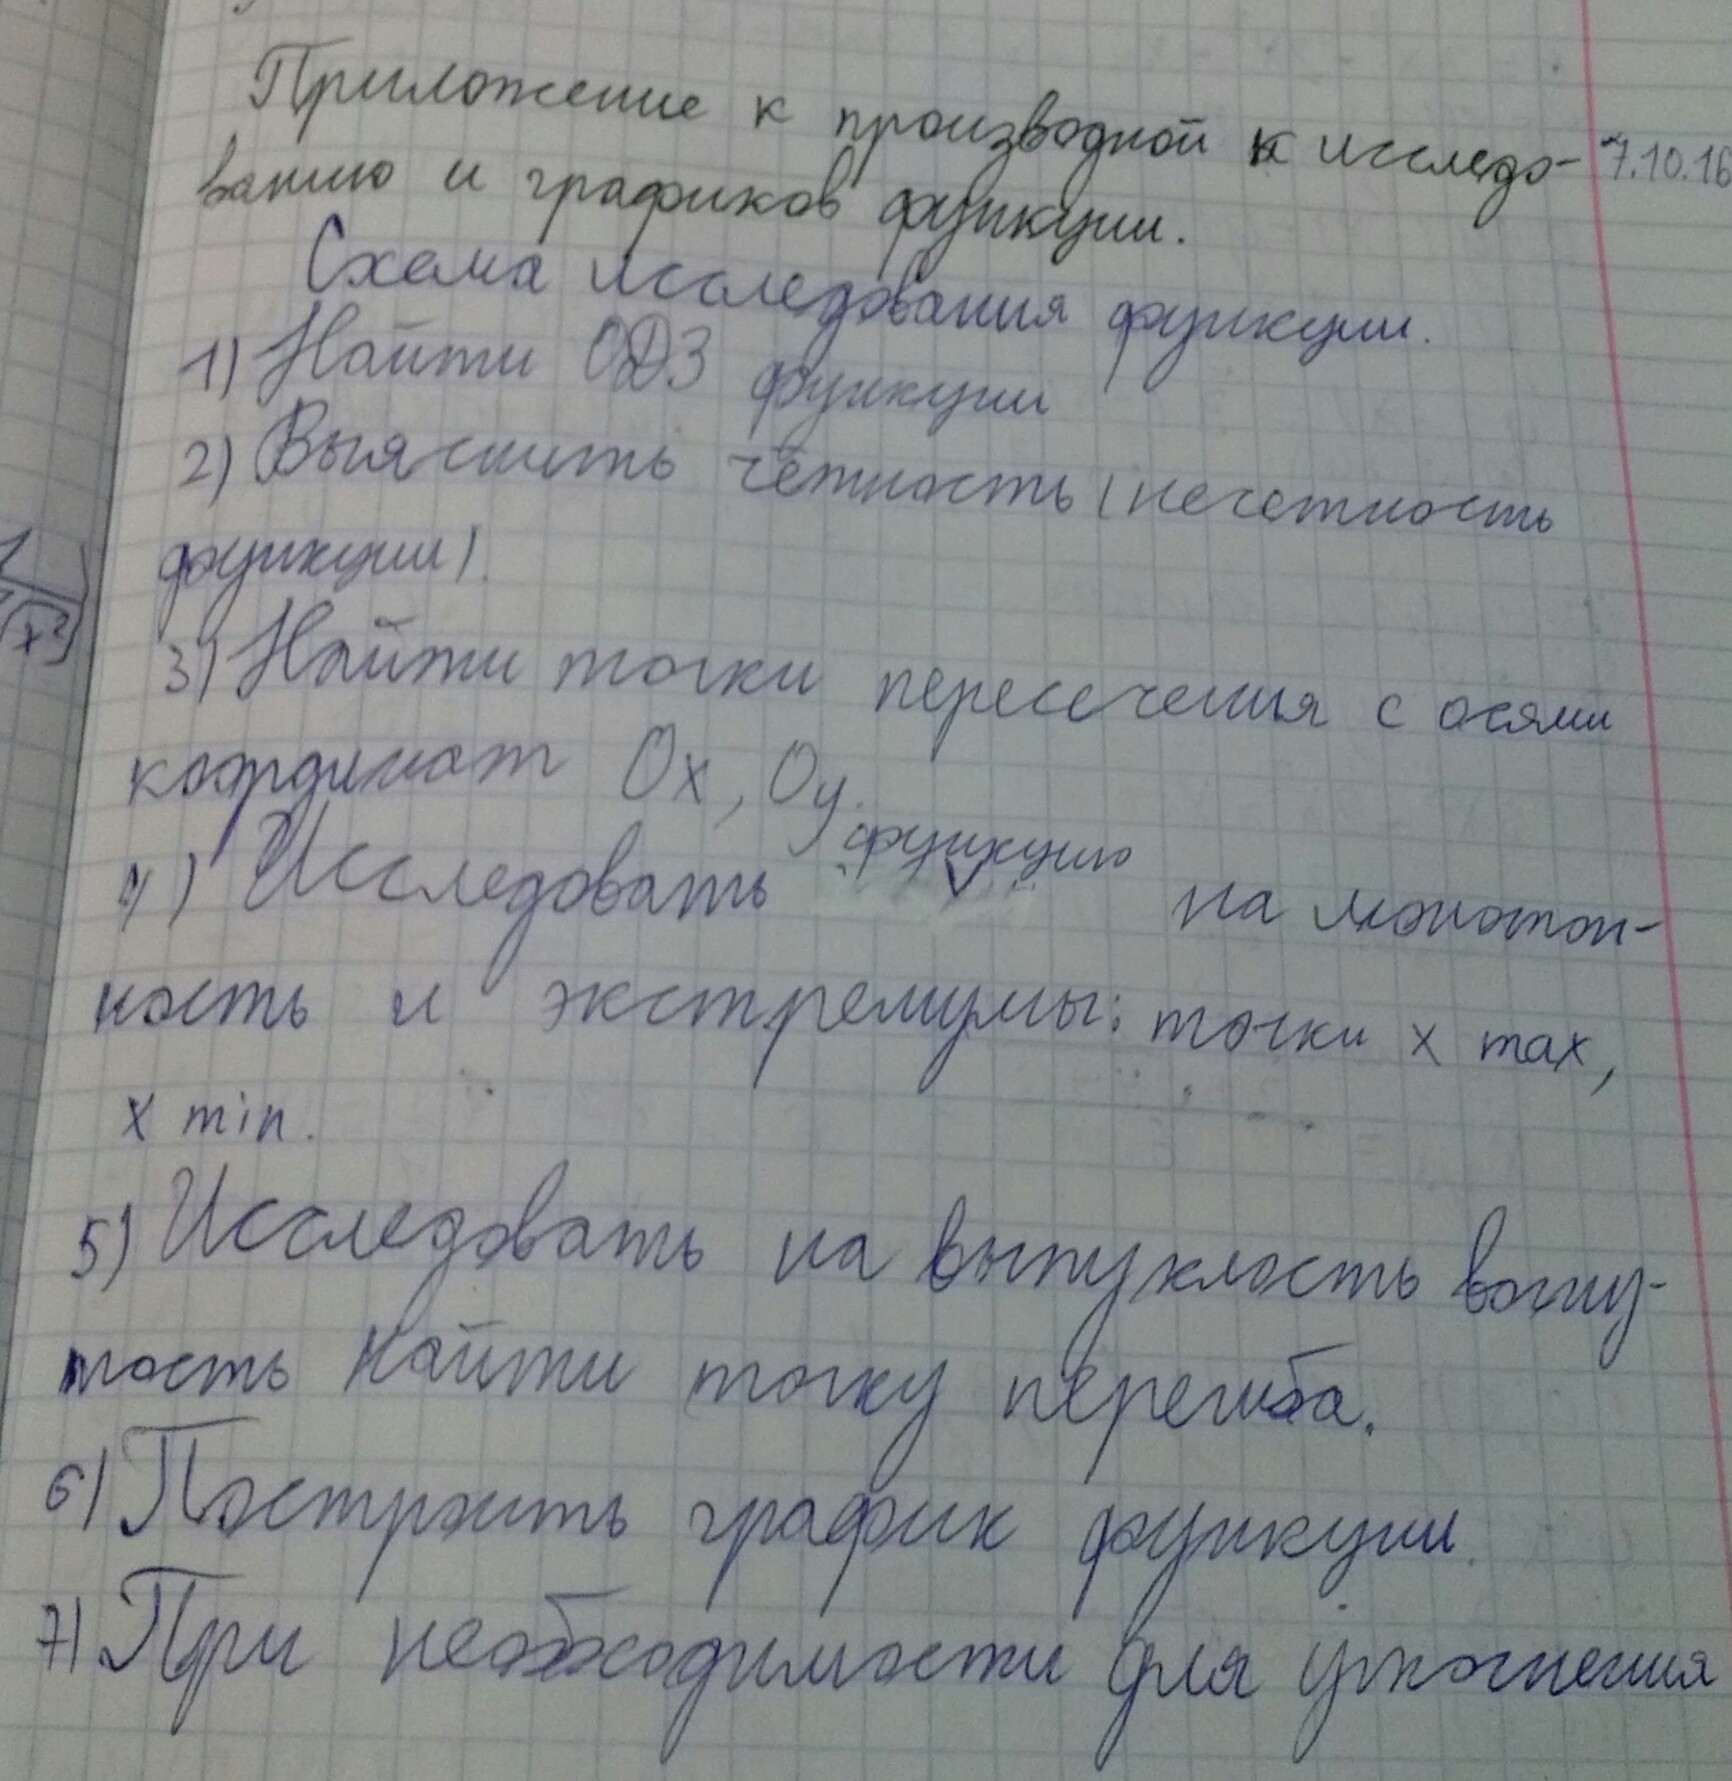 Приложение к производной к исследо- 7.10.16
ванию и графиков функции.
Схема исследования функции.
1) Найти ОДЗ функции
2) Выяснить чётность (нечетность
функции).
3) Найти точки пересечения с осями
координат Ox, Oy.
функцию
4) Исследовать на монотон-
ность и экстремумы: точки x max,
x min.
5) Исследовать на выпуклость вогну-
тость найти точку перегиба.
6) Построить график функции.
7) При необходимости для уточнения